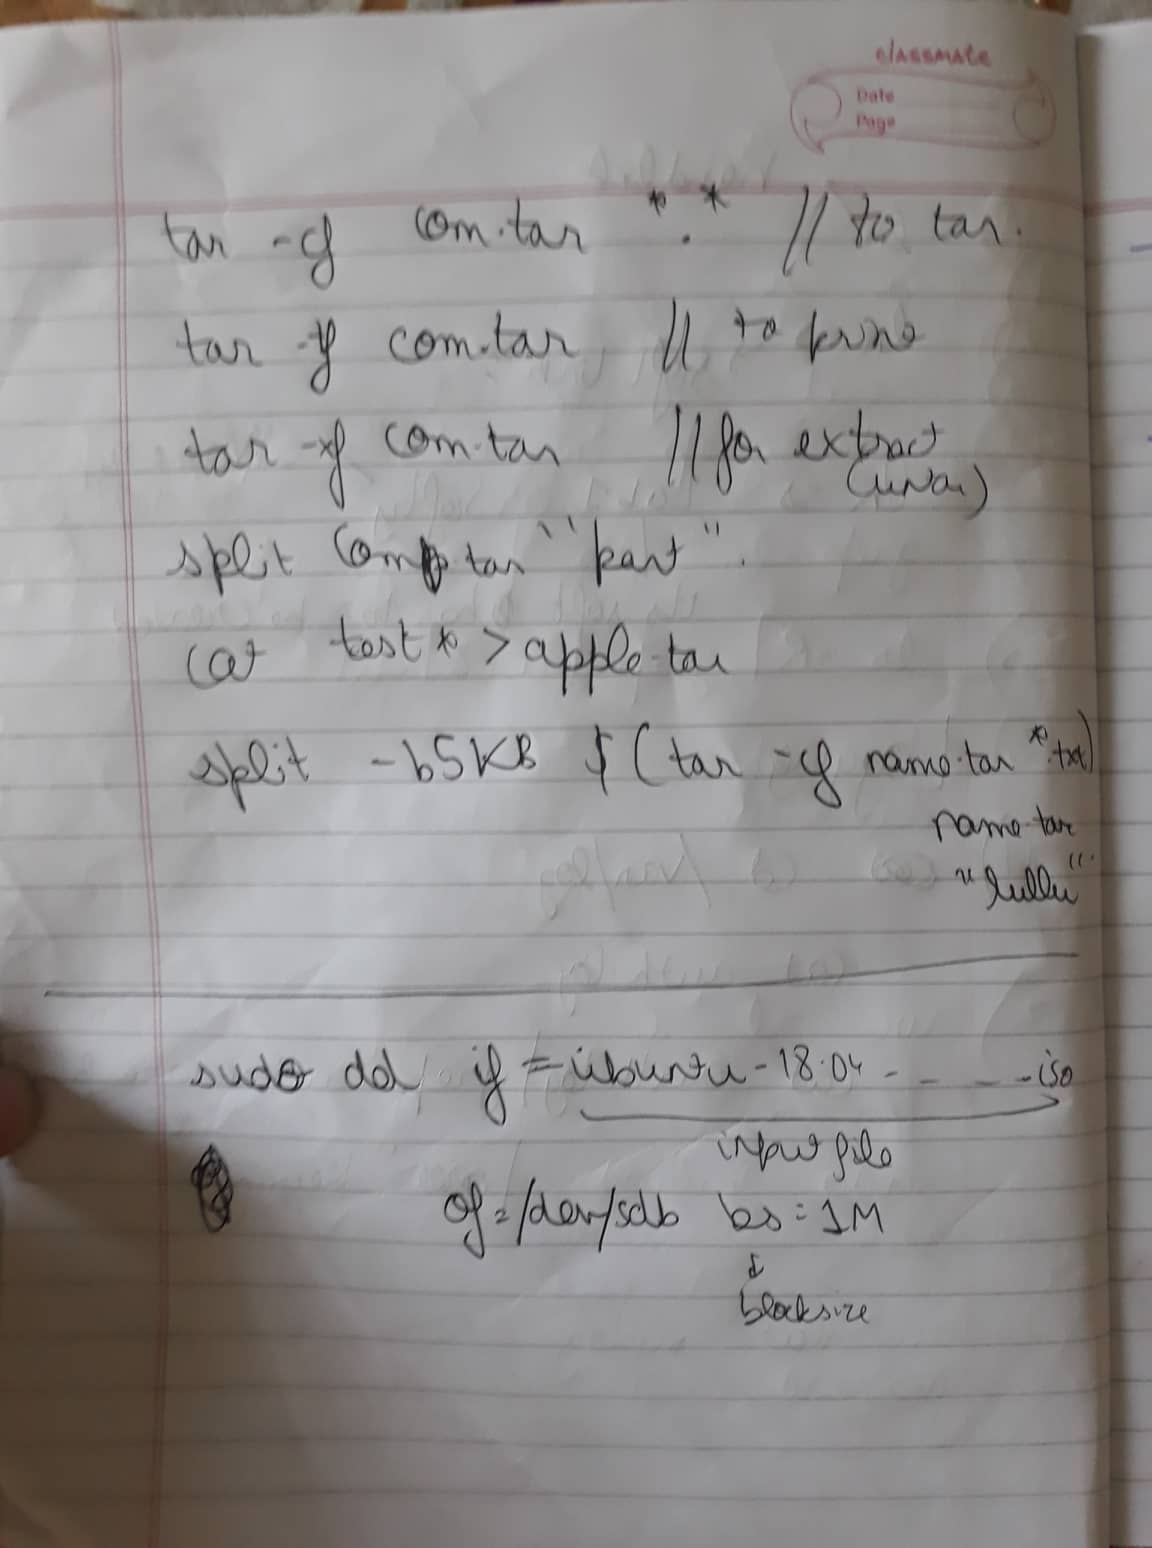 classmate
Date
Page
tar -cf com.tar *.* // to tar.
tar -tf com.tar // to
tar -xf com.tar // for extract
split com tar "part".
cat test* > apple.tar
split -b5KB $(tar -cf name.tar *.txt)
name.tar
"lullu"
sudo dd if = ubuntu-18.04 - - - -iso
input file
of=/dev/sdb bs=1M
↓
blocksize